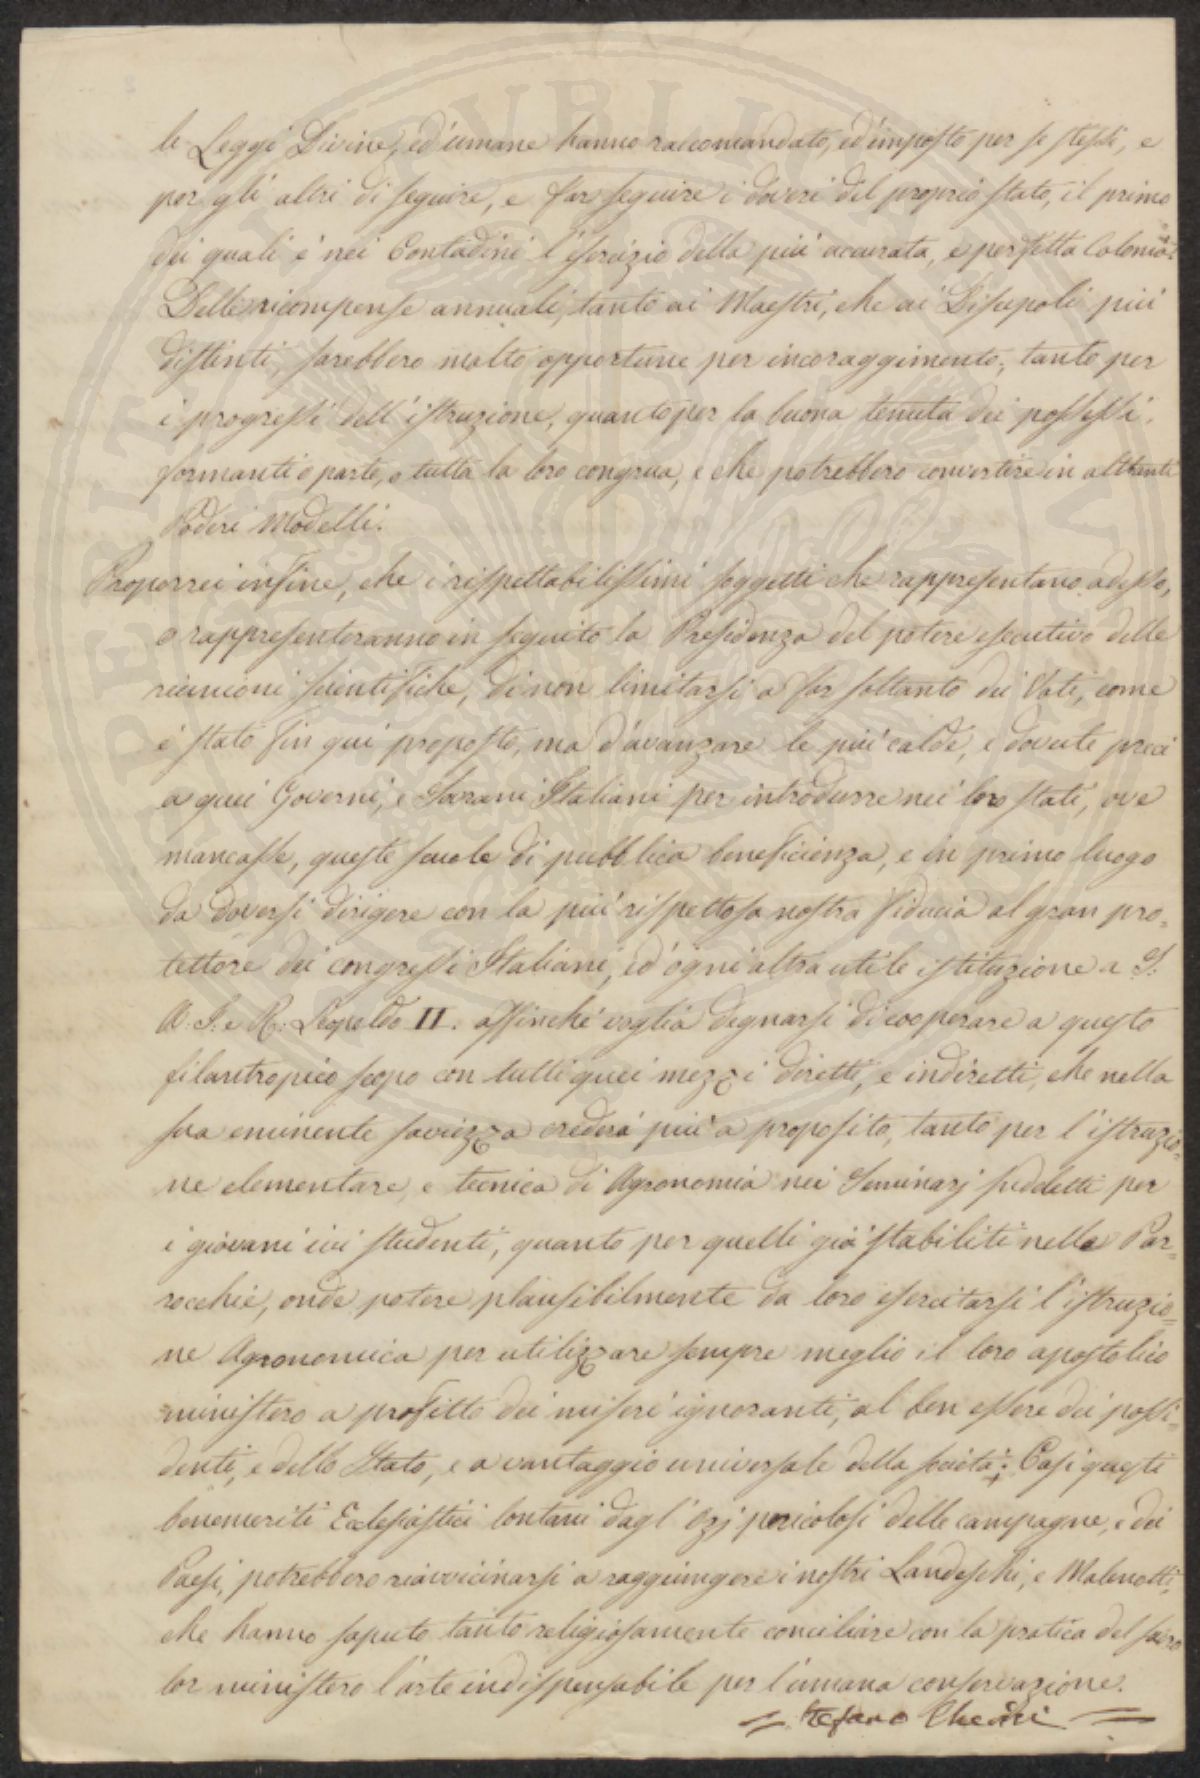 le Leggi Divine, ed'umane hanno raccomandato, ed'imposto per se stessi, e
per gli altri di seguire, e far seguire i doveri del proprio stato, il primo
dei quali è nei Contadini l'esercizio della più accurata, e perfetta Colonia:
Delle ricompense annuali, tanto ai Maestri, che ai Discepoli più
distinti sarebbero molto opportune per incoraggimento, tanto per
i progressi dell'istruzione, quanto per la buona tenuta dei possessi,
formanti o parte, o tutta la loro congrua, e che potrebbero convertire in altrettanti
Poderi Modelli.
Proporrei infine, che i rispettabilissimi soggetti che rappresentano adesso,
o rappresenteranno in seguito la Presidenza del potere esecutivo delle
riunioni scientifiche, di non limitarsi a far soltanto dei Voti, come
è stato fin qui proposto, ma d'avanzare le più calde, e dovute preci
a quei Governi, e Sovrani Italiani per introdurre nei loro stati, ove
mancasse, queste scuole di pubblica beneficienza, e in primo luogo
da doversi dirigere con la più rispettosa nostra fiducia al gran pro-
tettore dei congressi Italiani, ed'ogni altra utile istituzione a S.
A. I. e R. Leopoldo II. affinché voglia degnarsi di cooperare a questo
filantropico scopo con tutti quei mezzi diretti, e indiretti, che nella
sua eminente saviezza crederà più a proposito, tanto per l'istruzio-
ne elementare, e tecnica di Agronomia nei Seminarj suddetti per
i giovani ivi studenti, quanto per quelli già stabiliti nelle Par-
rocchie, onde potere plausibilmente da loro esercitarsi l'istruzio-
ne Agronomica per utilizzare sempre meglio il loro apostolico
ministero a profitto dei miseri ignoranti, al ben essere dei possi-
denti, e dello Stato, e a vantaggio universale della società; Così questi
benemeriti Ecclesiastici lontani dagl'Ozj pericolosi delle campagne, e dei
Paesi, potrebbero riavvicinarsi a raggiungere i nostri Landeschi, e Malenotti,
che hanno saputo tanto religiosamente conciliare con la pratica del sacro
lor ministero l'arte indispensabile per l'umana conservazione.
Stefano